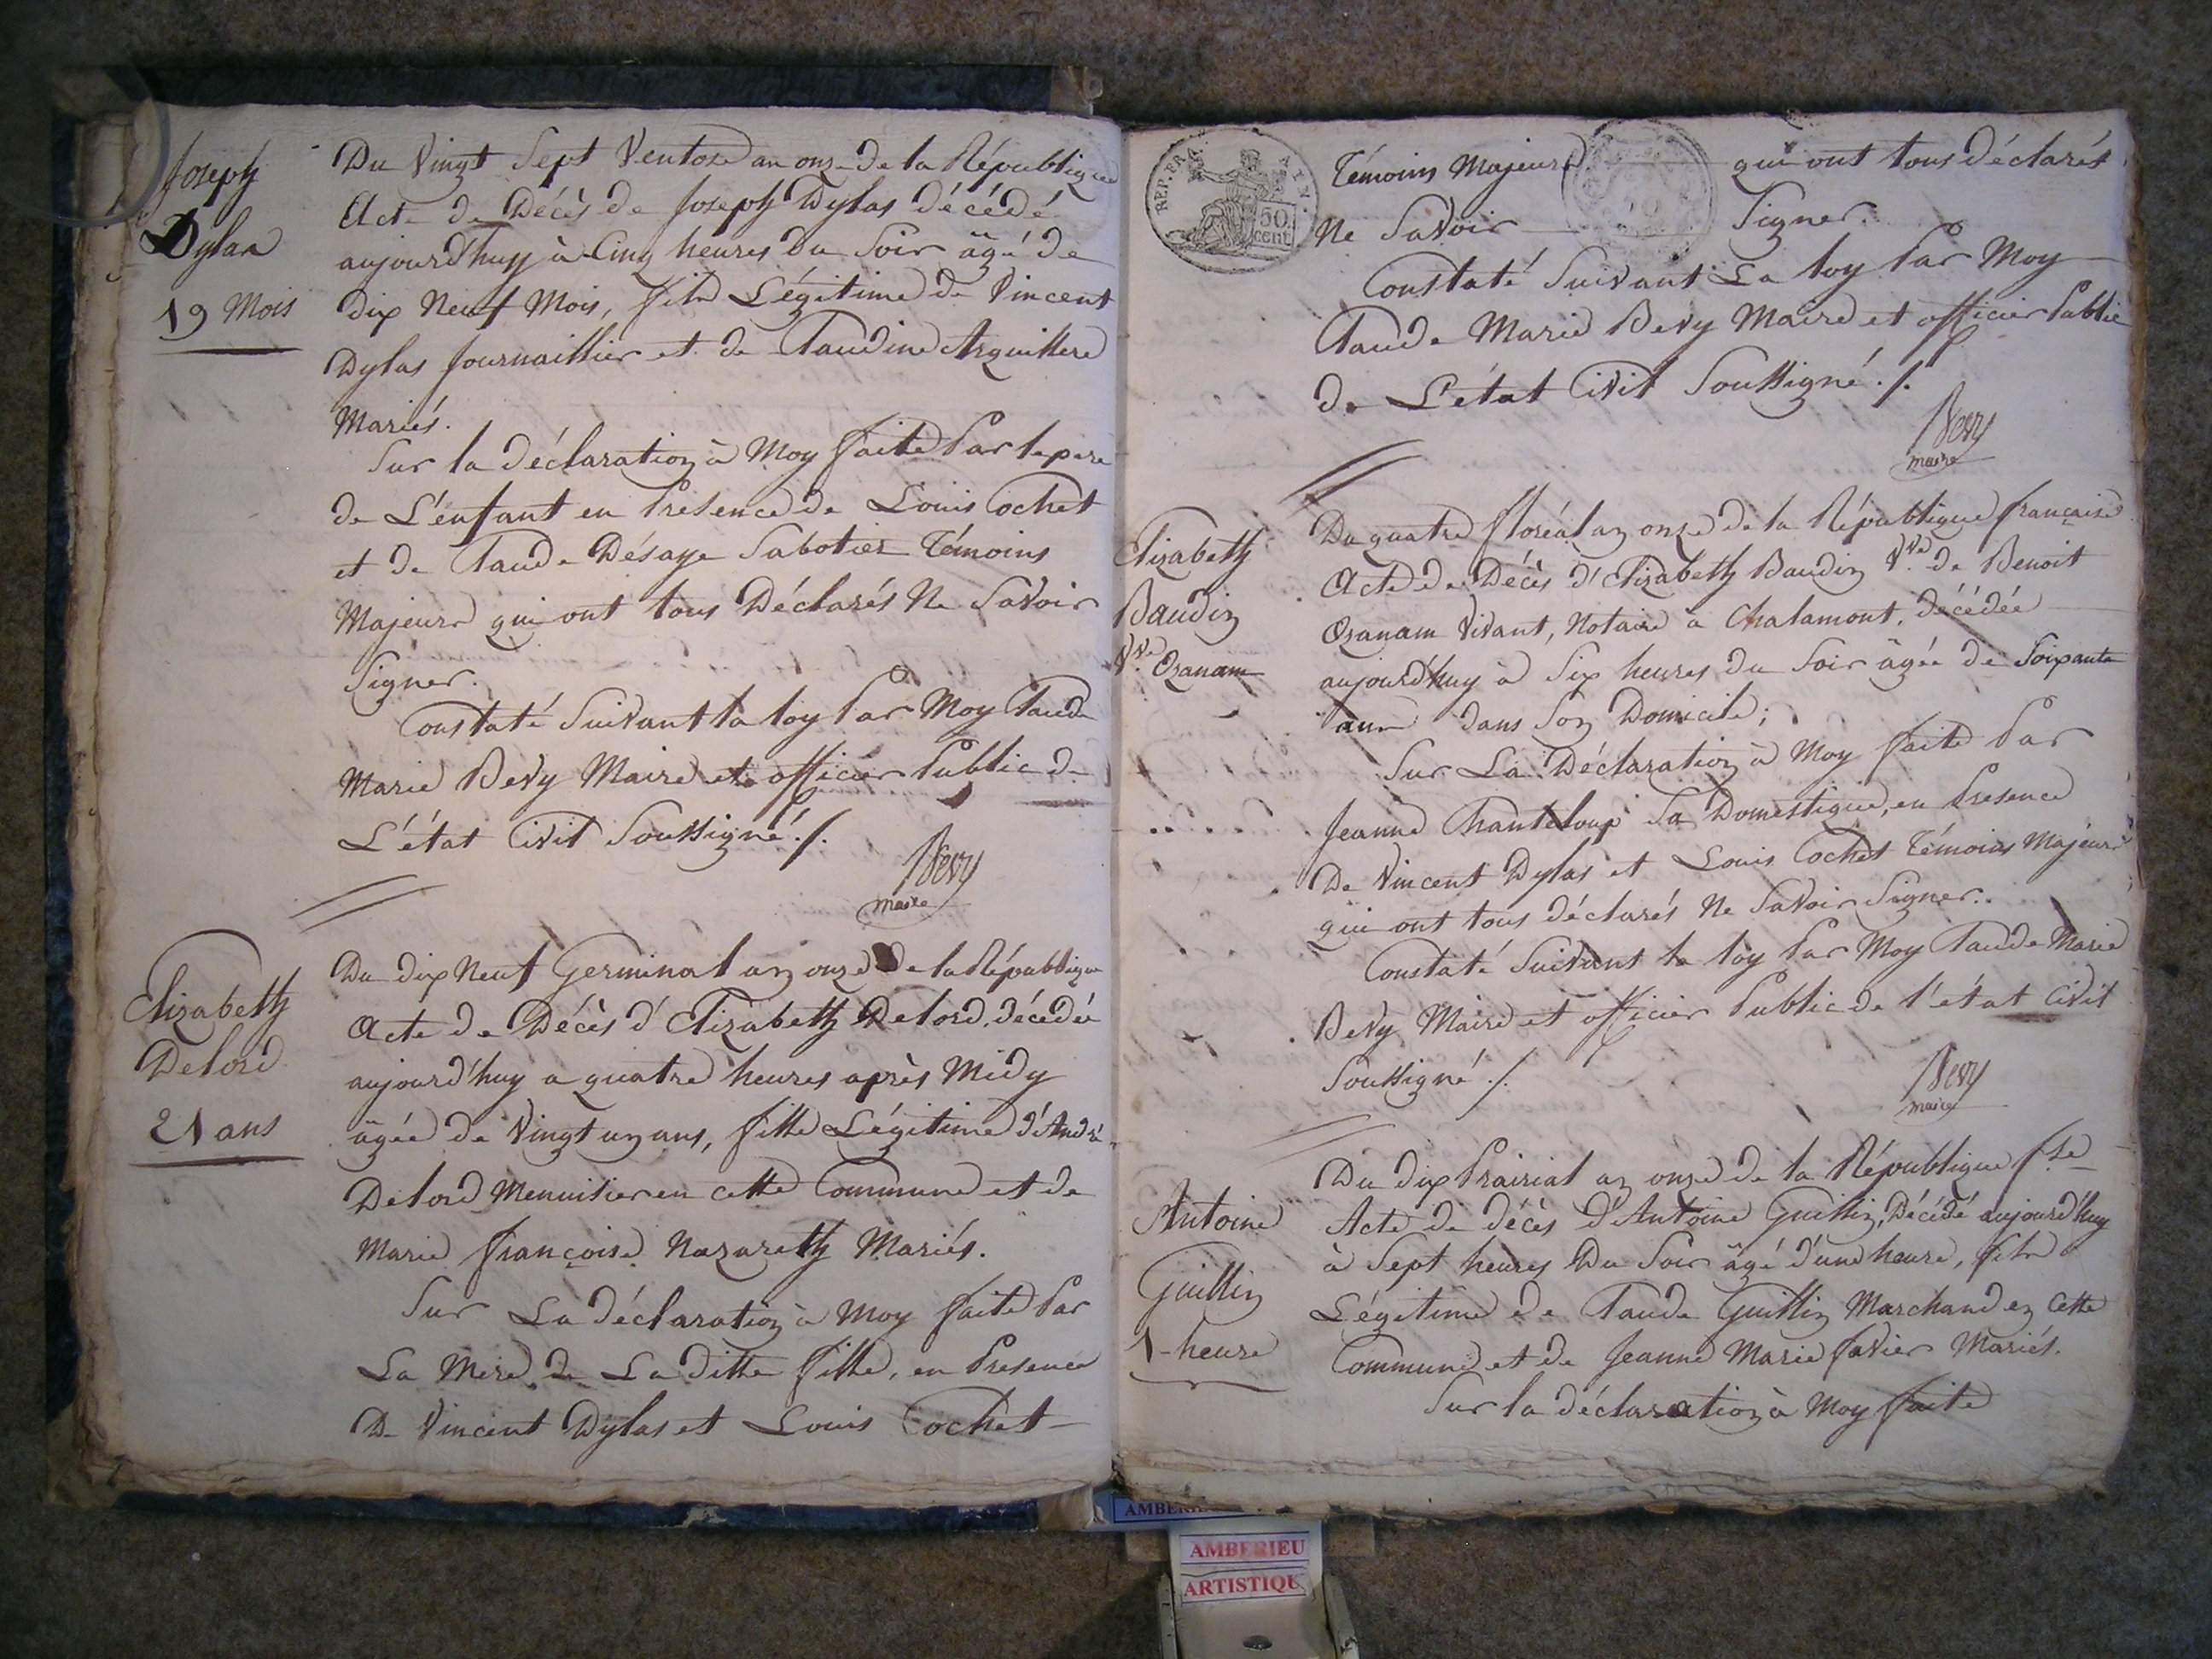 Joseph
Dylas
19 Mois
Du Vingt Sept Ventose an onze de la République
Acte de Décès de Joseph Dylas décédé
aujourd'huy à Cinq heures du Soir âgé de
dix Neuf Mois, fils Légitime de Vincent
Dylas Journaillier et de Claudine Arguillere
Mariés.
Sur la déclaration à Moy faite Par le pere
de L'enfant en Presence de Louis Cochet
et de Claude Désaye Sabotier Témoins
Majeurs qui ont tous Déclarés Ne Savoir
Signer.
Constaté Suivant la loy Par Moy Claude
Marie Bevy Maire et officier Public de
L'état Civil Soussigné ./.
Bevy
maire
Elizabeth
Delord
21 ans
Du dix Neuf Germinal an onze de la République
Acte de Décès d'Elizabeth Delord, décédée
aujourd'huy a quatre heures après Midy
âgée de Vingt un ans, fille Légitime d'André
Delord Menuisier en cette Commune et de
Marie françoise Nazareth Mariés.
Sur La déclaration à Moy faite Par
La Mere de La ditte fille, en Presence
De Vincent Dylas et Louis Cochet
REP. FRA.
50
cent.
Témoins Majeurs qui ont tous déclarés
Ne Savoir Signer.
Constaté Suivant La loy Par Moy
Claude Marie Bevy Maire et officier Public
de L'état Civil Soussigné ./.
Bevy
maire
Elizabeth
Baudin
Vve Ozanam
Du quatre floréal an onze de la République française
Acte de Décès d'Elizabeth Baudin Vve de Benoit
Ozanam Vivant, Notaire à Chalamont, décédée
aujourd'huy à Six heures du Soir âgée de Soixante
ans dans Son Domicile;
Sur La Déclaration à Moy faite Par
Jeanne Chanteloup Sa Domestique, en Presence
De Vincent Dylas et Louis Cochet Témoins Majeurs
qui ont tous déclarés Ne Savoir Signer.
Constaté Suivant la loy Par Moy Claude Marie
Bevy Maire et officier Public de l'état Civil
Soussigné ./.
Bevy
maire
Antoine
Guillin
1 heure
Du dix Prairial an onze de la République fse
Acte de décès d'Antoine Guillin, Décédé aujourd'huy
à Sept heures Du Soir âgé d'une heure, fils
Légitime de Claude Guillin Marchand en Cette
Commune et de Jeanne Marie favier Mariés.
Sur la déclaration à Moy faite
AMBERIEU
ARTISTIQU